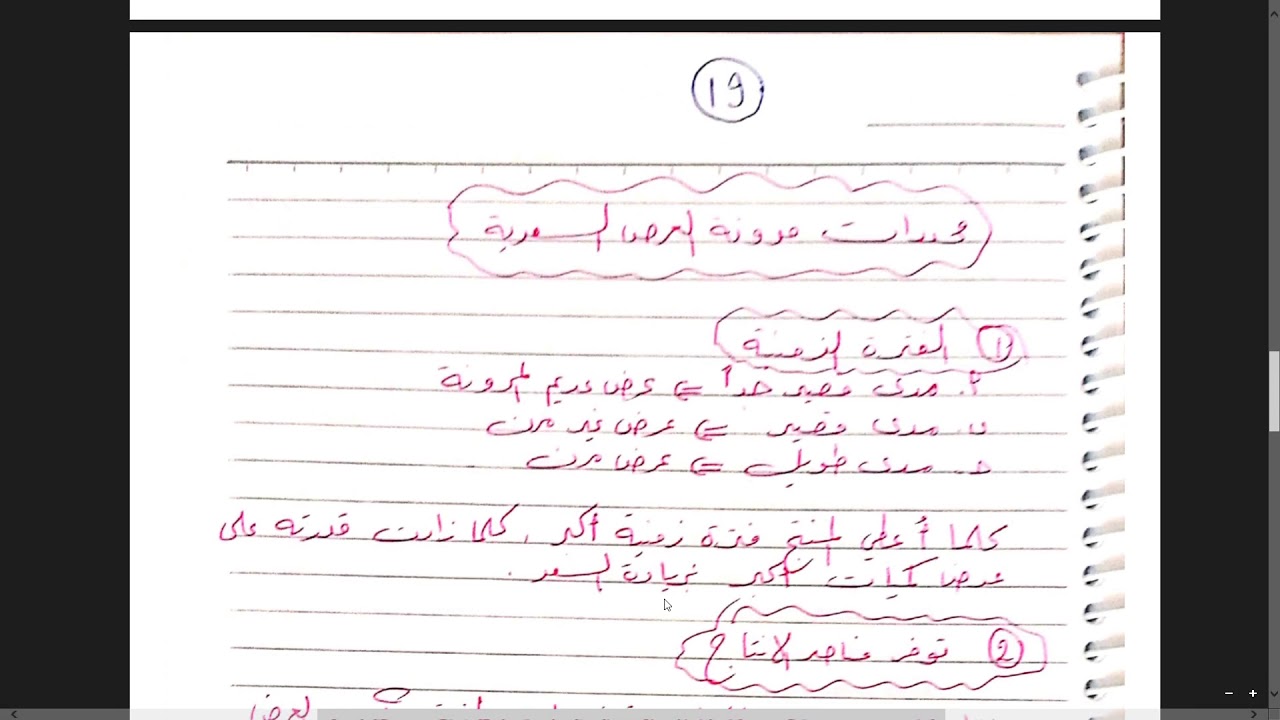 19
محددات مرونة العرض السعرية
1 الفترة الزمنية
أ. مدى قصير جداً ⇐ عرض عديم المرونة
ب. مدى قصير ⇐ عرض غير مرن
ج. مدى طويل ⇐ عرض مرن
كلما أعطي المنتج فترة زمنية أكبر، كلما زادت قدرته على
عرض كميات أكبر بزيادة السعر.
2 توفر عناصر الانتاج